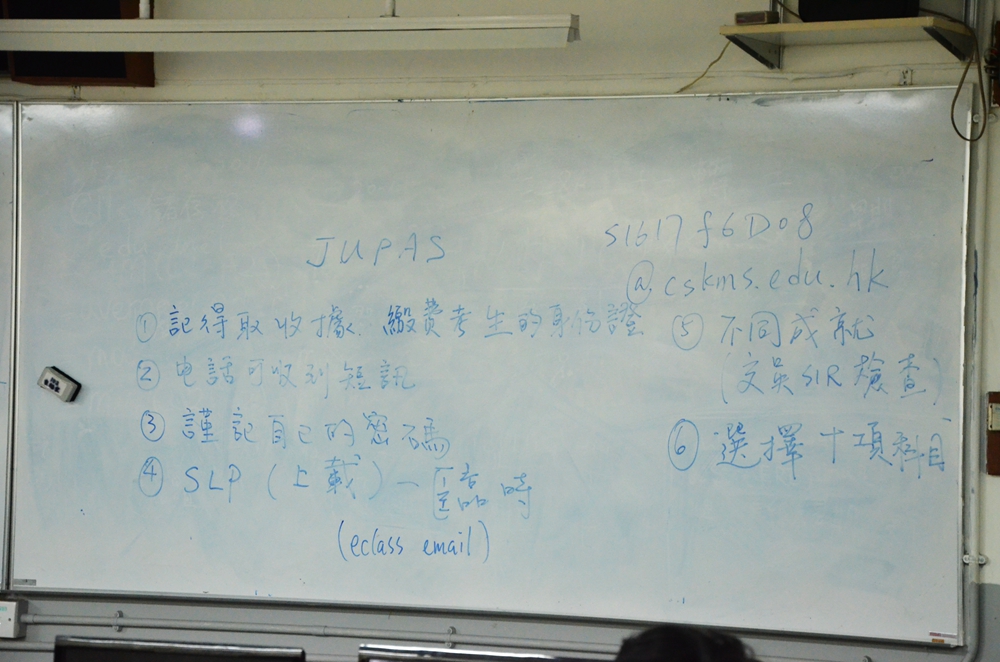 JUPAS
① 記得取收據、繳費考生的身份證
② 电話可收到短訊
③ 謹記自己的密碼
④ SLP (上載) 一 臨時
(eclass email)
s1617f6D08
@.cskms.edu.hk
⑤ 不同成就
(交吳SIR檢查)
⑥ 選擇十項科目